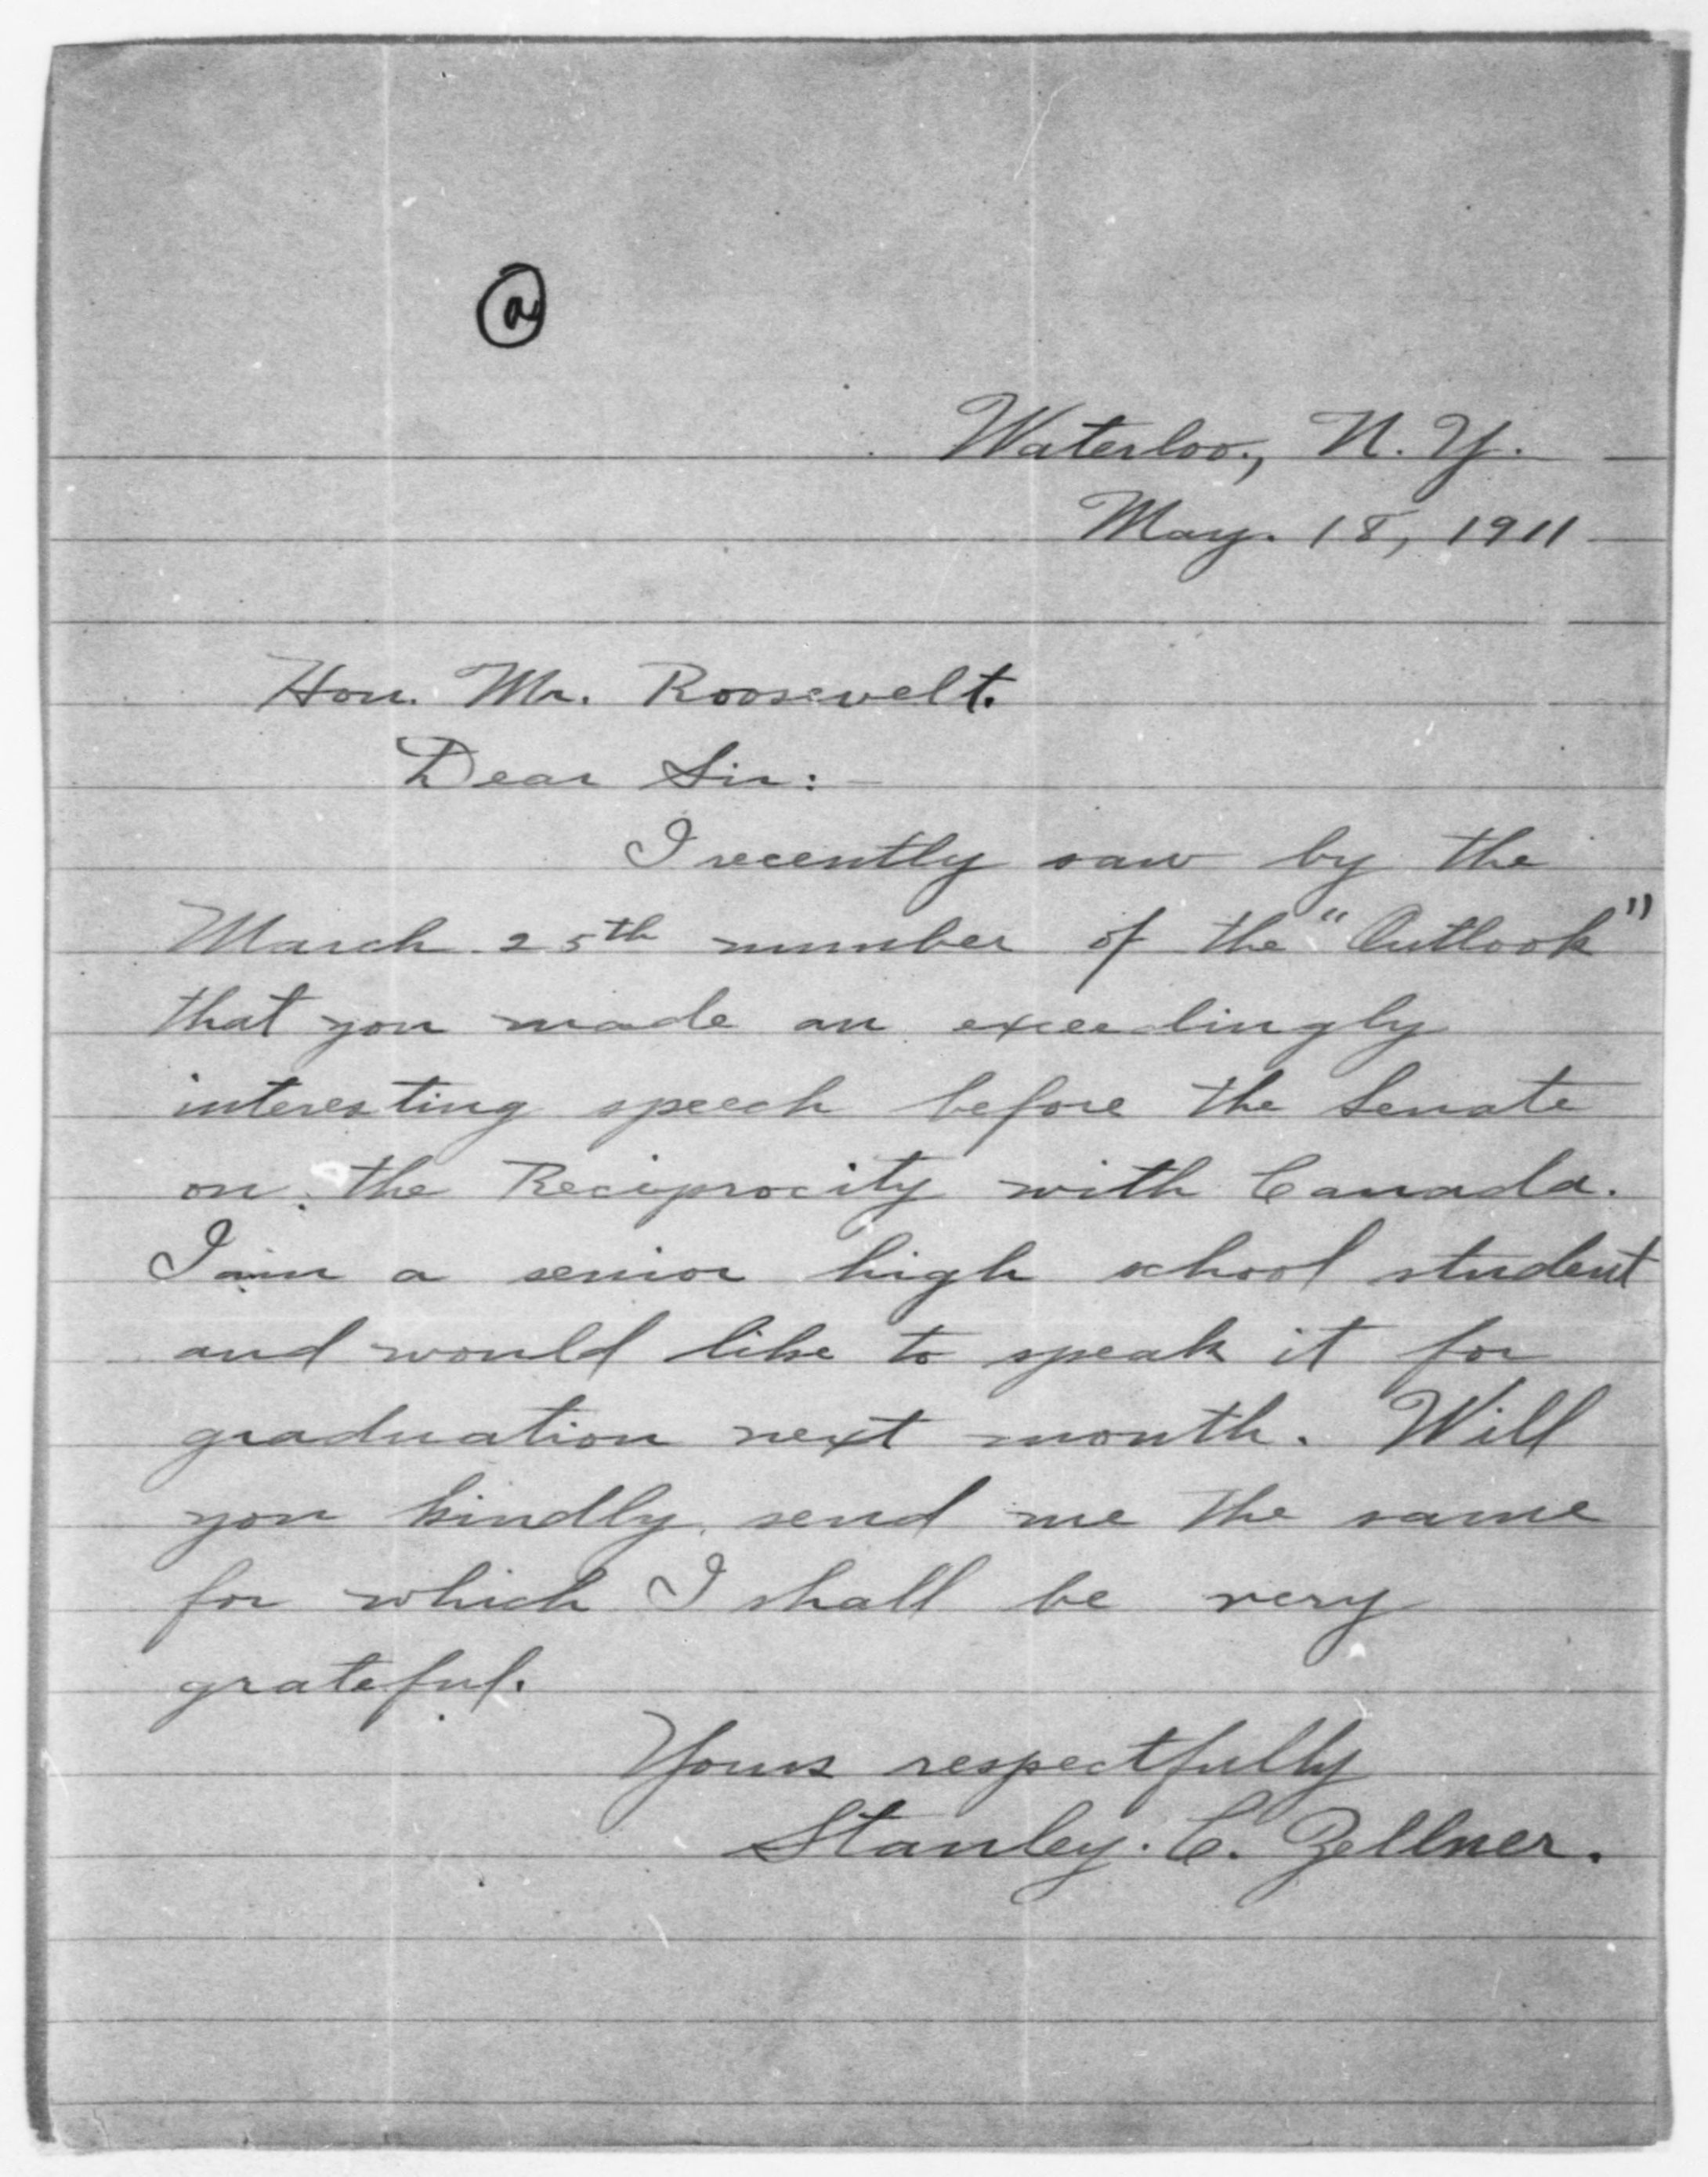 a
Waterloo., N. Y.
May. 18, 1911
Hon. Mr. Roosevelt.
Dear Sir: -
I recently saw by the
March 25th number of the "Outlook"
that you made an exceedingly
interesting speech before the Senate
on the Reciprocity with Canada.
I am a senior high school student
and would like to speak it for
graduation next month. Will
you kindly send me the same
for which I shall be very
grateful.
Yours respectfully
Stanley. C. Zellner.